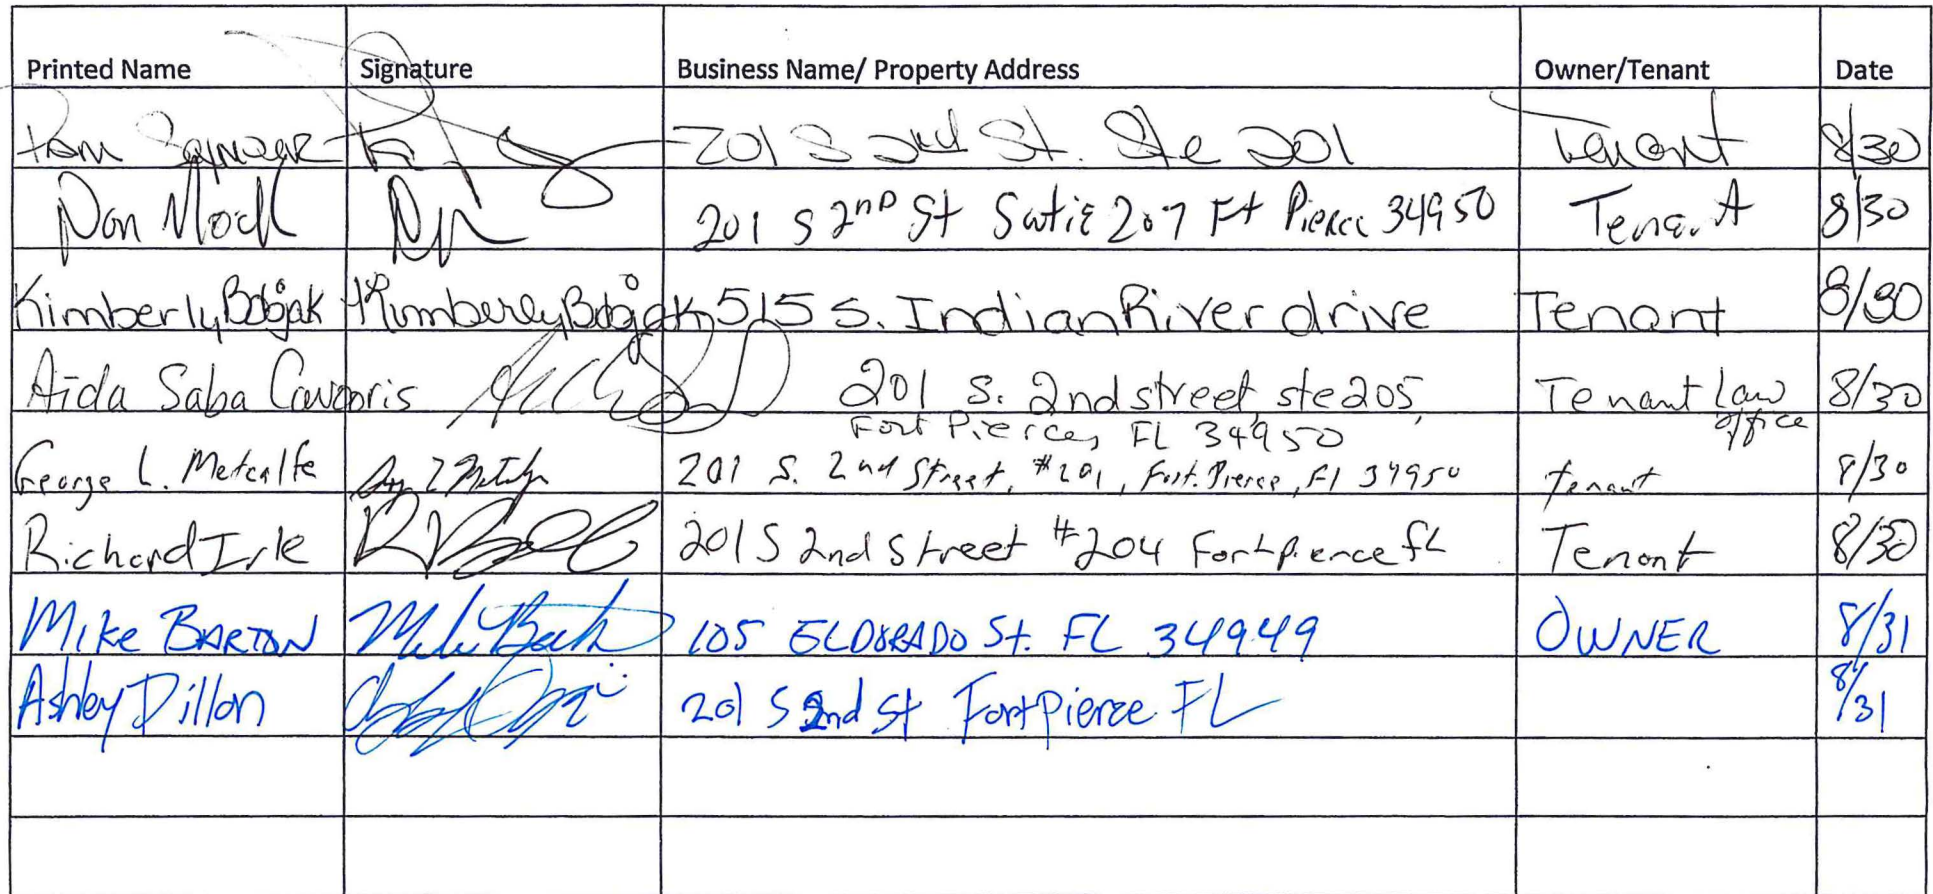 Printed Name Signature Business Name/ Property Address Owner/Tenant Date
Pam 201 S 2nd St. Ste 201 Tenant 8/30
Don Mock 201 S 2nd St Sutie 207 Ft Pierce 34950 Tenant 8/30
Kimberly Bobjak Kimberly Bobjak 515 S. Indian River drive Tenant 8/30
Aida Saba Cavooris 201 S. 2nd street, ste 205, Tenant Law
Fort Pierce, FL 34950 office 8/30
George L. Metcalfe 201 S. 2nd Street, #201, Fort. Pierce, Fl 34950 tenant 8/30
Richard Irle 201 S 2nd Street #204 Fort Pierce fL Tenant 8/30
MIKE BARTON Mike Barton 105 ELDORADO St. FL 34949 OWNER 8/31
Ashley Dillon 201 S 2nd St Fort Pierce FL 8/31